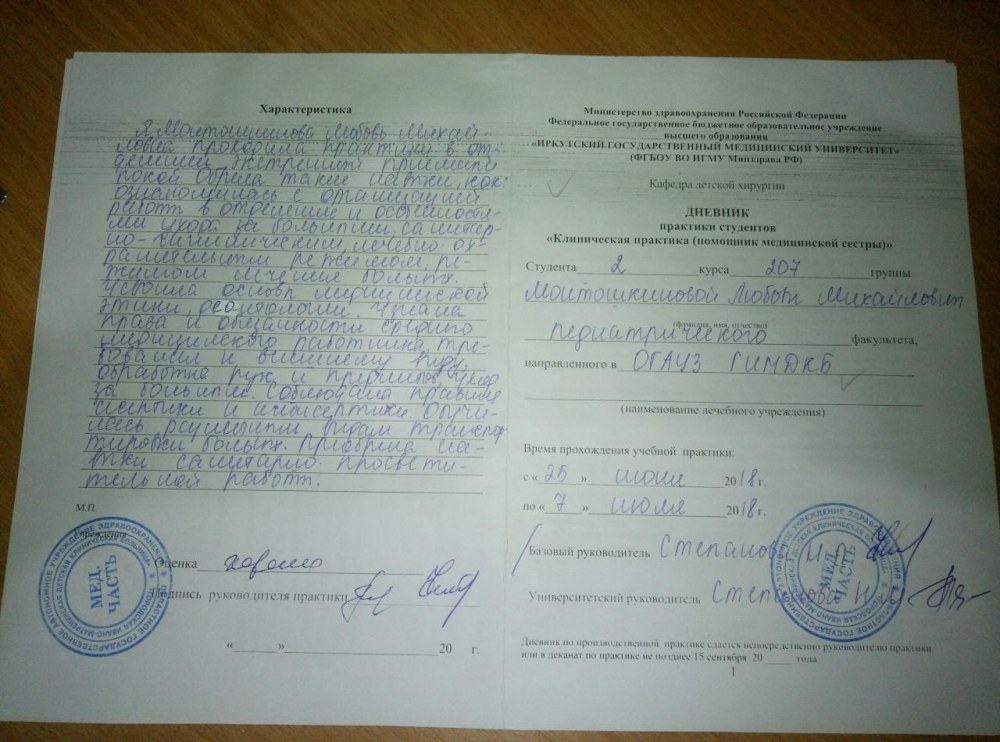 Характеристика
Я Монтошкинова Любовь Михай-
ловна проходила практику в от-
делении экстренный приемный
покой. Обрела такие навыки, как:
ознакомилась с организацией
работы в отделение и особенностя-
ми ухода за больными, санитар-
но-гигиеническим, лечебно ох-
ранительным режимом, ре-
жимом лечение больных.
Усвоила основы медицинской
этики, деонтологии. Узнала
права и обязанности среднего
медицинского работника, тре-
бования к внешнему виду,
обработка рук и предметов, уход
за больными. Соблюдала правила
асептики и антисептики. Обучи-
лась различным видам транспор-
тировки больных. Приобрела на-
выки санитарно-просвети-
тельной работы.
М.П.
Учреждения
МЕД. ЧАСТЬ
Оценка хорошо
Подпись руководителя практики
«_____»____________________20 г.
Министерство здравоохранения Российской Федерации
Федеральное государственное бюджетное образовательное учреждение
высшего образования
«ИРКУТСКИЙ ГОСУДАРСТВЕННЫЙ МЕДИЦИНСКИЙ УНИВЕРСИТЕТ»
(ФГБОУ ВО ИГМУ Минздрава РФ)
Кафедра детской хирургии
ДНЕВНИК
практики студентов
«Клиническая практика (помощник медицинской сестры)»
Студента 2 курса 207 группы
Монтошкиновой Любови Михайловны
(фамилия, имя, отчество)
педиатрического факультета,
направленного в ОГАУЗ ГИМДКБ
(наименование лечебного учреждения)
Время прохождения учебной практики:
с « 25 » июня 2018 г.
по « 7 » июля 2018 г.
Базовый руководитель Степанова
МЕД. ЧАСТЬ
Университетский руководитель Степанова
Дневник по производственной практике сдается непосредственно руководителю практики
или в деканат по практике не позднее 15 сентября 20 _____ года
1